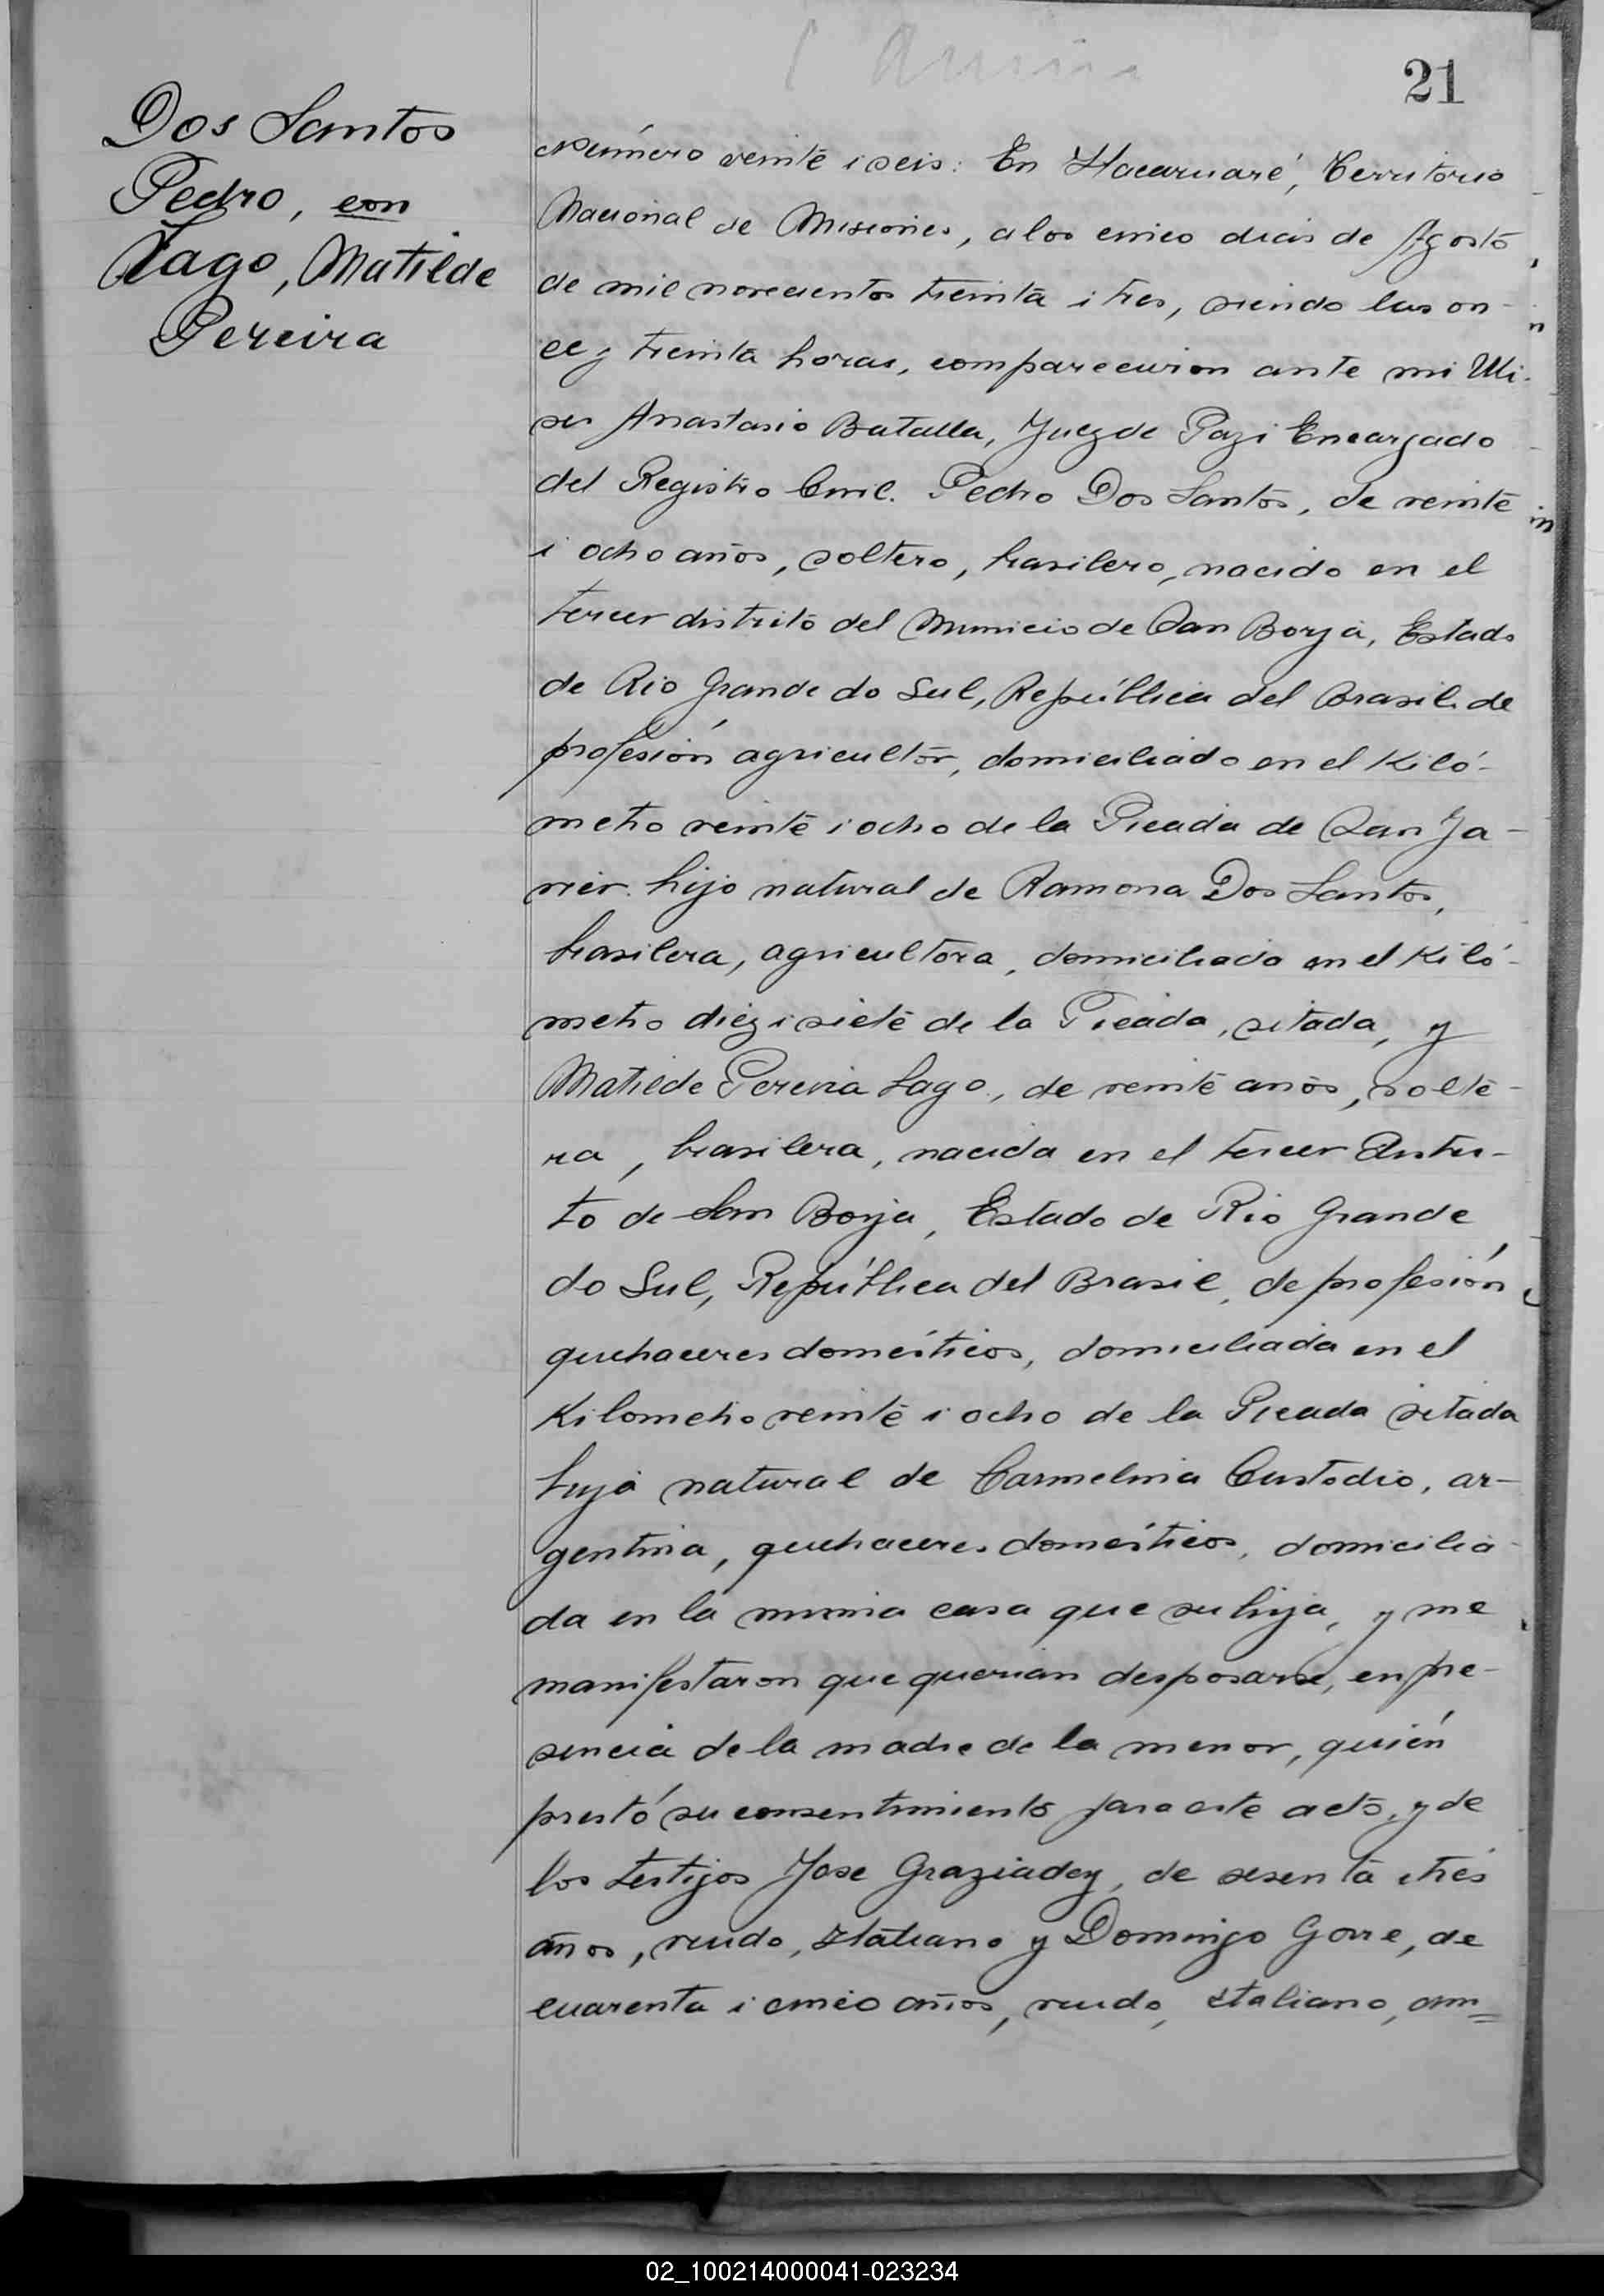 21
Dos Santos
Pedro, con
Lago, Matilde
Pereira
Número veinte i seis: En Itacaruaré, Territorio
Nacional de Misiones, a los cinco dias de Agosto
de mil novecientos treinta i tres, siendo las on-
ce y treinta horas, comparecieron ante mi Uli-
ses Anastasio Batalla, Juez de Paz i Encargado
del Registro Civil. Pedro Dos Santos, de veinte
i ocho años, soltero, brasilero, nacido en el
tercer distrito del Municio de San Borja, Estado
de Rio Grande do Sul, República del Brasil. de
profesión agricultor, domiciliado en el Kiló-
metro veinte i ocho de la Picada de San Ja-
vier. hijo natural de Ramona Dos Santos,
brasilera, agricultora, domiciliada en el Kiló-
metro diez i siete de la Picada, sitada, y
Matilde Pereria Lago, de veinte años, solte-
ra, brasilera, nacida en el tercer Distri-
to de San Borja, Estado de Rio Grande
do Sul, República del Brasil, de profesión
quehaceres domésticos, domiciliada en el
Kilometro veinte i ocho de la Picada sitada
hija natural de Carmelina Custodio, ar-
gentina, quehaceres domésticos, domicilia-
da en la misma casa que su hija, y me
manifestaron que querian desposarse, en pre-
sencia de la madre de la menor, quién
prestó su consentimiento para este acto, y de
los testijos Jose Graziadey, de sesenta i tres
años, viudo, Italiano y Domingo Gorre, de
cuarenta i cinco años, viudo, italiano, am=
02_100214000041-023234